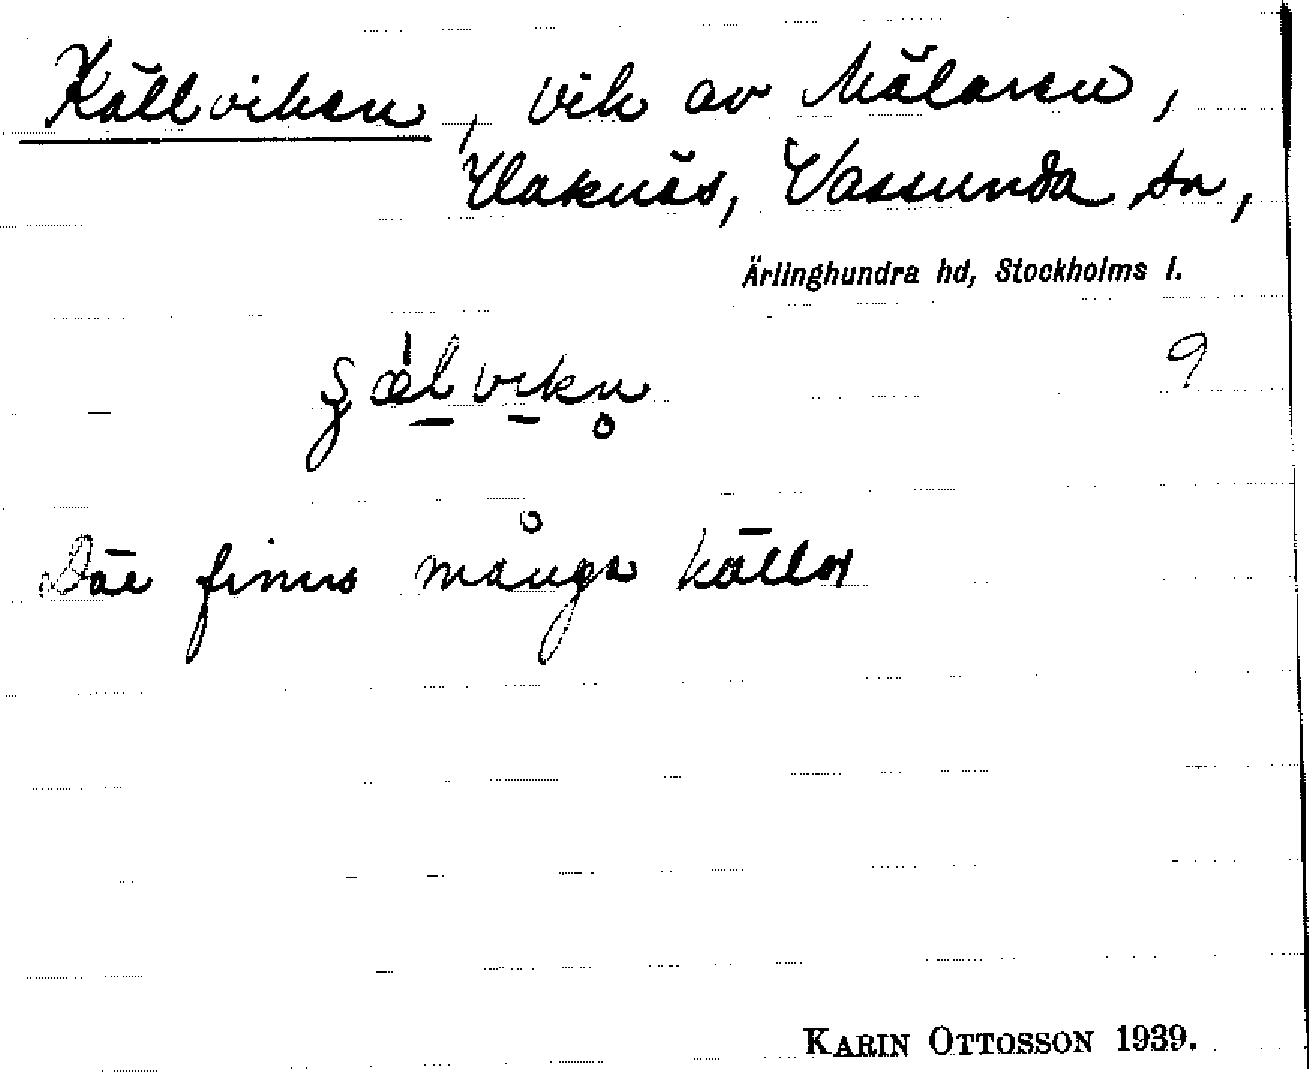 Källviken, vik av Mälaren,
Vaknäs, Vassunda sn,
Ärlinghundra hd, Stockholms l.
9
Där finns många källor
KARIN OTTOSSON 1939.